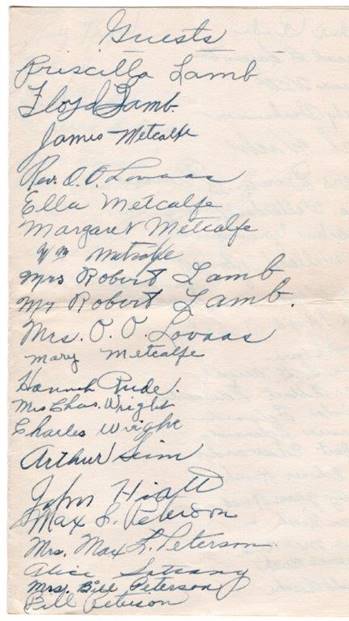 Guests
Priscilla Lamb
Floyd Lamb.
James Metcalfe
Rev. O. O. Lovaas
Ella Metcalfe
Margaret Metcalfe
Wm Metcalfe
Mrs Robert Lamb
Mr Robert Lamb.
Mrs. O. O. Lovaas
Mary Metcalfe
Hannah Rude.
Mrs Chas. Wright
Charles Wright
Arthur Seim
John Hiatt
Max L. Peterson
Mrs. Max L. Peterson
Alice
Mrs. Bill Peterson
Bill Peterson